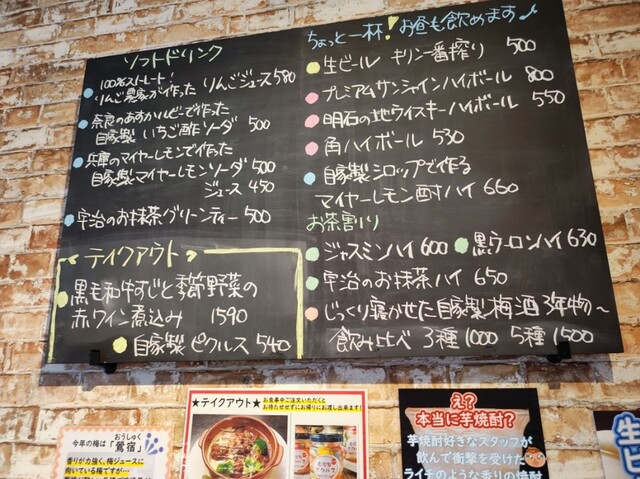 ソフトドリンク
100%ストレート!
りんご農家が作った りんごジュース 580
奈良のあすかルビーで作った
自家製 いちご酢ソーダ 500
兵庫のマイヤーレモンで作った
自家製マイヤーレモンソーダ 500
ジュース 450
宇治のお抹茶グリーンティー 500
テイクアウト
黒毛和牛すじと季節野菜の
赤ワイン煮込み 1590
自家製 ピクルス 540
ちょっと一杯!お昼も飲めます♪
生ビール キリン一番搾り 500
プレミアムサンシャインハイボール 800
明石の地ウイスキーハイボール 550
角ハイボール 530
自家製シロップで作る
マイヤーレモン酎ハイ 660
お茶割り
ジャスミンハイ 600 黒ウーロンハイ 630
宇治のお抹茶ハイ 650
じっくり寝かせた自家製梅酒 3年物〜
飲み比べ 3種 1000 5種 1500
おうしゅく
今年の梅は「鶯宿」
香りが力強く、梅ジュースに
向いている梅ですが…
★テイクアウト★
お食事中ご注文いただくと
お待たせせずにお帰りにお渡し出来ます!
え?
本当に芋焼酎?
芋焼酎好きなスタッフが
飲んで衝撃を受けた
ライチのような香りの焼酎
生ビ